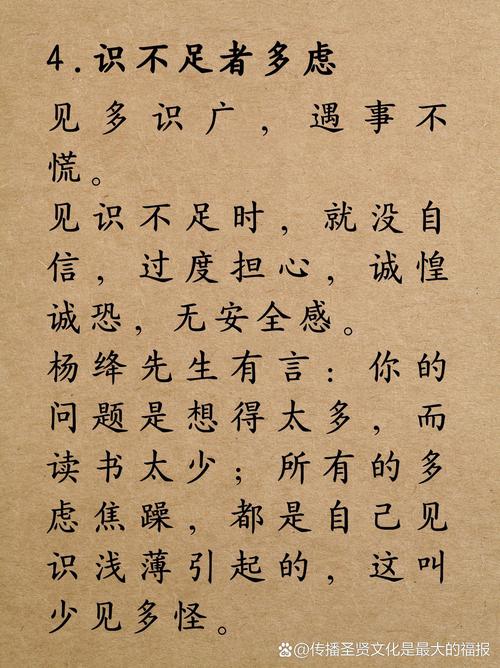 4.识不足者多虑
见多识广，遇事不
慌。
见识不足时，就没自
信，过度担心，诚惶
诚恐，无安全感。
杨绛先生有言：你的
问题是想得太多，而
读书太少；所有的多
虑焦躁，都是自己见
识浅薄引起的，这叫
少见多怪。
@传播圣贤文化是最大的福报